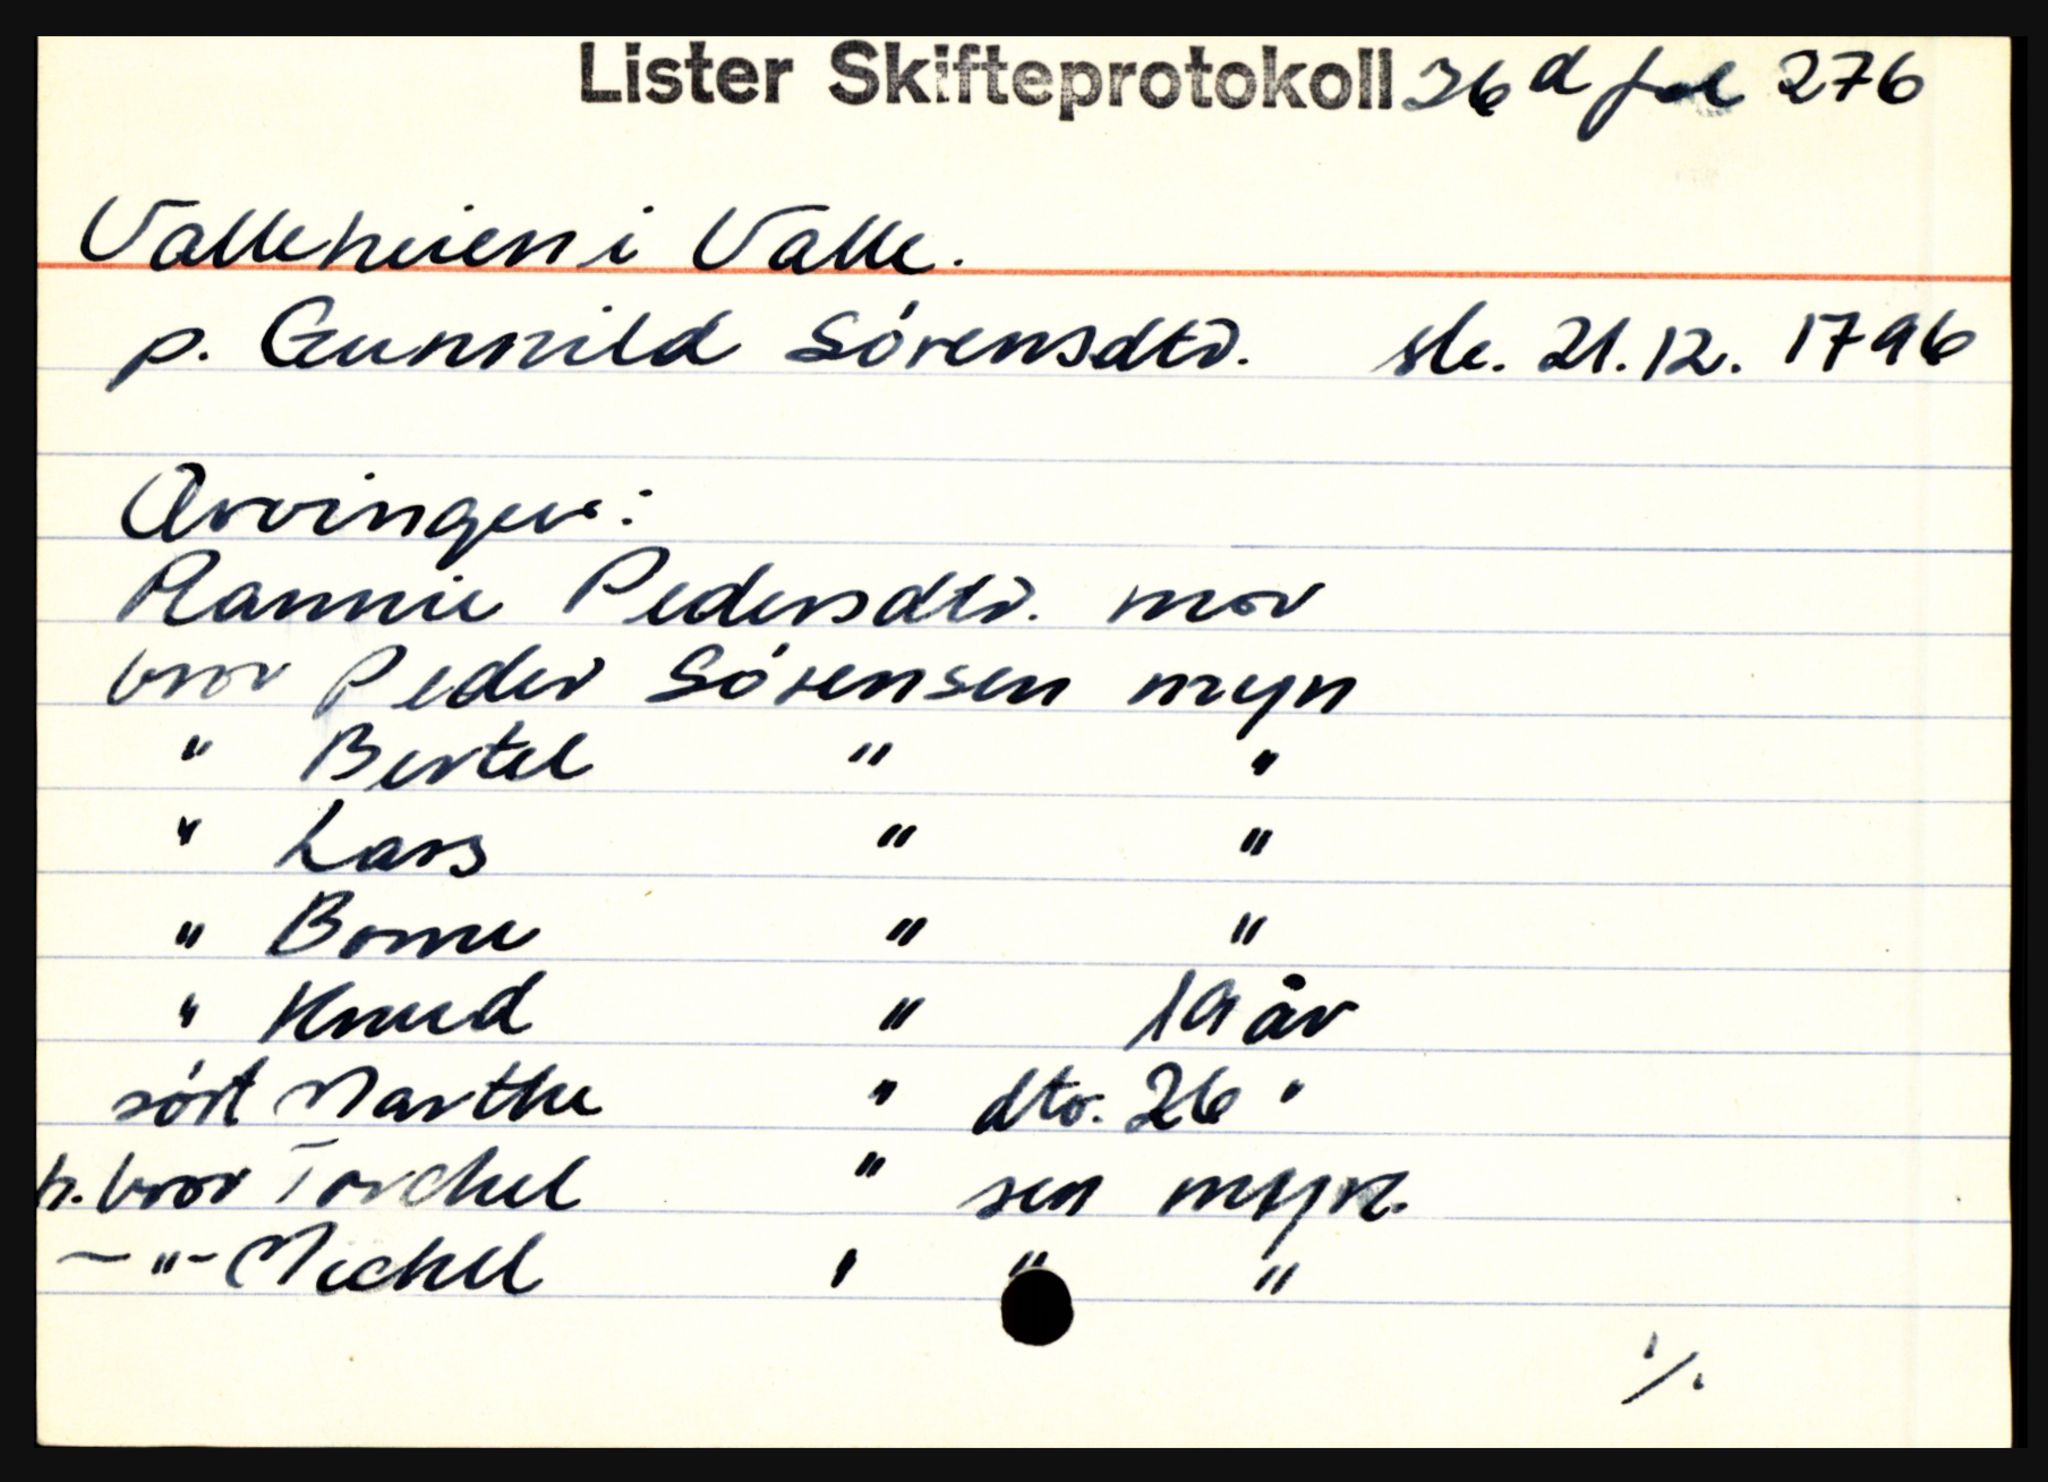 Lister Skifteprotokoll 36 d fol 276
Valleheien i Valle.
p. Gunnild Sörensdtr. sk. 21.12. 1796
Arvinger:
Rannie Pedersdtr. mor
bror Peder Sörensen myn
" Bertel " "
" Lars " "
" Bome " "
" Knud " 19 år
söst Marthe " dtr. 26 "
h. bror Torchel " sen myn.
— " - Michel " " "
1/.